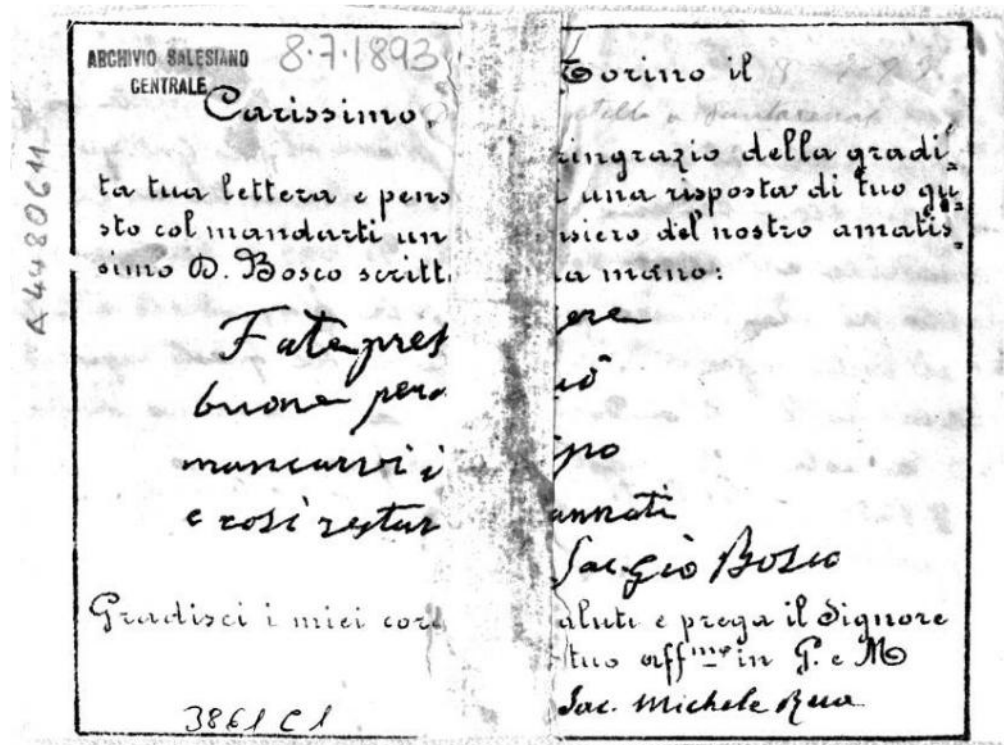 ARCHIVIO SALESIANO
CENTRALE
8·7·1893
Torino il
Carissimo,
ringrazio della gradi
ta tua lettera e pens una risposta di tuo gu
sto col mandarti un nsiero del nostro amatis
simo D. Bosco scritt a mano:
Fate prest ere
buone però uò
mancarvi i po
e così restar annati
Sac. Gio Bosco
Gradisci i miei cor aluti e prega il Signore
tuo aff.mo in G. e M
Sac. Michele Rua
3861 C1
A4480611